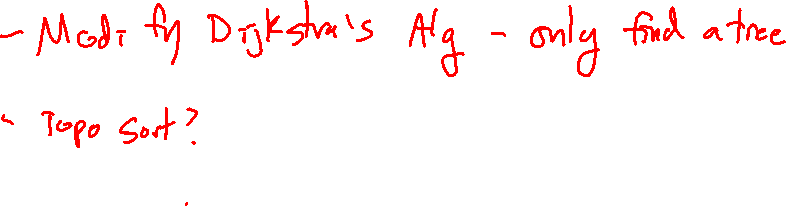 - Modify Dijkstra's Alg - only find a tree
- Topo Sort?